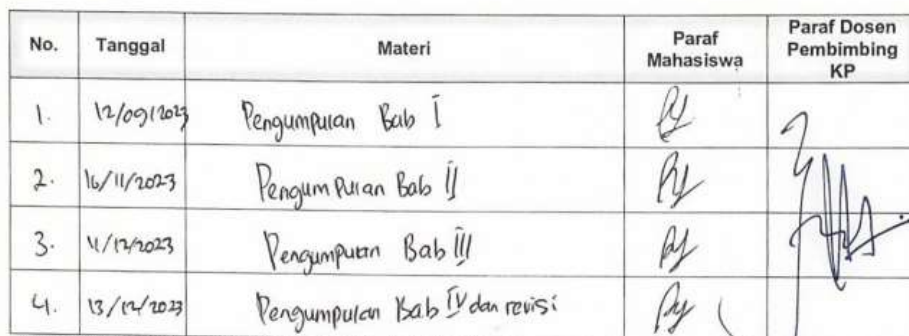 No. Tanggal Materi Paraf Mahasiswa Paraf Dosen Pembimbing KP
1. 12/09/2023 Pengumpulan Bab I
2. 16/11/2023 Pengumpulan Bab II
3. 11/12/2023 Pengumpulan Bab III
4. 13/12/2023 Pengumpulan Bab IV dan revisi